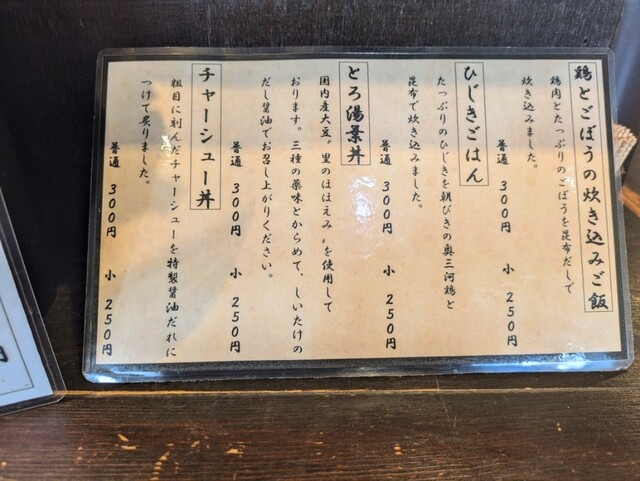 鶏とごぼうの炊き込みご飯
鶏肉とたっぷりのごぼうを昆布だしで
炊き込みました。
普通 300円 小 250円
ひじきごはん
たっぷりのひじきを朝びきの奥三河鶏と
昆布で炊き込みました。
普通 300円 小 250円
とろ湯葉丼
国内産大豆〝里のほほえみ〟を使用して
おります。三種の薬味とからめて、しいたけの
だし醤油でお召し上がりください。
普通 300円 小 250円
チャーシュー丼
粗目に刻んだチャーシューを特製醤油だれに
つけて炙りました。
普通 300円 小 250円
円